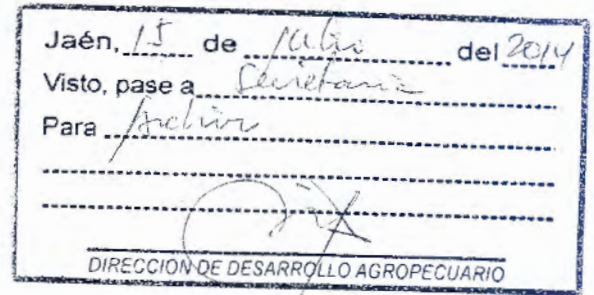 Jaén, 15 de Julio del 2014
Visto, pase a Secretaria
Para Archivo
DIRECCION DE DESARROLLO AGROPECUARIO